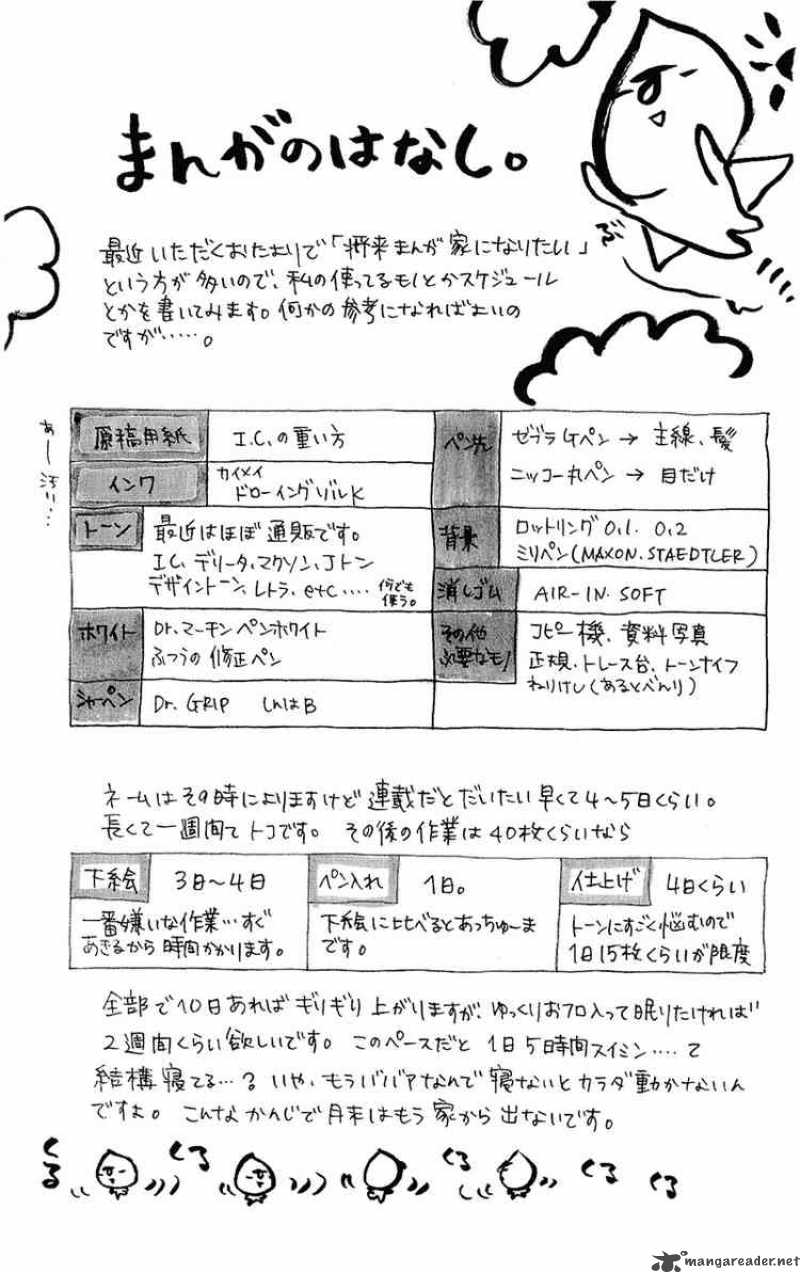 まんがのはなし。
最近いただくおたよりで「将来まんが家になりたい」
という方が多いので、私の使ってるモノとかスケジュール
とかを書いてみます。何かの参考になればよいの
ですが……。
あぁー汚い…
原稿用紙
I.C.の重い方
インク
カイメイ
ドローイングゾルK
トーン
最近はほぼ通販です。
I.C, デリータ、マクソン、Jトン
デザイントーン、レトラ、etc….
何でも
使う。
ホワイト
Dr.マーチン ペンホワイト
ふつうの修正ペン
シャーペン
Dr. GRIP しんはB
ペン先
ゼブラGペン → 主線、髪
ニッコー丸ペン → 目だけ
背景
ロットリング 0.1. 0.2
ミリペン(MAXON.STAEDTLER)
消しゴム
AIR-IN SOFT
その他
必要なモノ
コピー機、資料写真
定規、トレース台、トーンナイフ
ねりけし(あるとべんり)
ネームはその時によりますけど連載だとだいたい早くて4〜5日くらい。
長くて一週間てトコです。その後の作業は40枚くらいなら
下絵
3日〜4日
一番嫌いな作業…すぐ
あきるから時間かかります。
ペン入れ
1日。
下絵に比べるとあっちゅーま
です。
仕上げ
4日くらい
トーンにすごく悩むので
1日15枚くらいが限度
全部で10日あればギリギリ上がりますが、ゆっくりおフロ入って眠りたければ
2週間くらい欲しいです。このペースだと1日5時間スイミン….て
結構寝てる…? いや、もうババアなんで寝ないとカラダ動かないん
ですよ。こんなかんじで月末はもう家から出ないです。
くる
くる
くる
くる
くる
mangareader.net